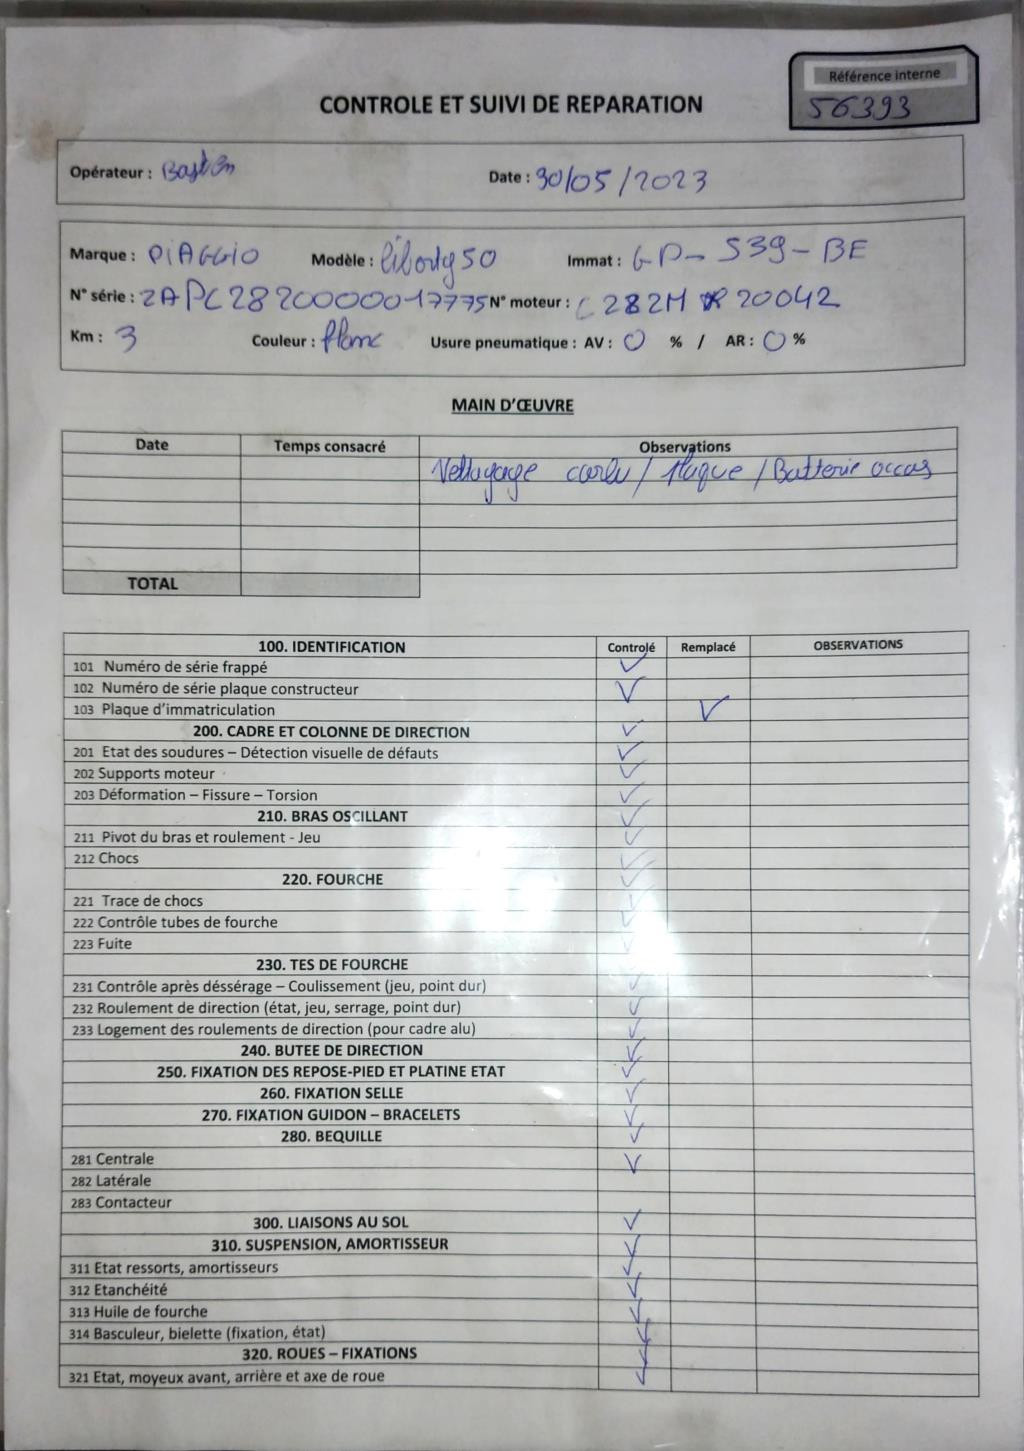 Référence interne
56393
CONTROLE ET SUIVI DE REPARATION
Opérateur : Bastien
Date : 30/05/2023
Marque : PIAGGIO Modèle : Liberty 50 Immat : GP - 539 - BE
N° série : ZAPC2820000017775 N° moteur : C282M * 20042
Km : 3 Couleur : Blanc Usure pneumatique : AV : 0 % / AR : 0 %
MAIN D'ŒUVRE
Date Temps consacré Observations
Nettoyage carbu / plaque / Batterie occas
TOTAL
100. IDENTIFICATION Controlé Remplacé OBSERVATIONS
101 Numéro de série frappé ✓
102 Numéro de série plaque constructeur ✓
103 Plaque d'immatriculation ✓
200. CADRE ET COLONNE DE DIRECTION ✓
201 Etat des soudures – Détection visuelle de défauts ✓
202 Supports moteur ✓
203 Déformation – Fissure – Torsion ✓
210. BRAS OSCILLANT ✓
211 Pivot du bras et roulement - Jeu ✓
212 Chocs ✓
220. FOURCHE ✓
221 Trace de chocs ✓
222 Contrôle tubes de fourche ✓
223 Fuite ✓
230. TES DE FOURCHE
231 Contrôle après déssérage – Coulissement (jeu, point dur) ✓
232 Roulement de direction (état, jeu, serrage, point dur) ✓
233 Logement des roulements de direction (pour cadre alu) ✓
240. BUTEE DE DIRECTION ✓
250. FIXATION DES REPOSE-PIED ET PLATINE ETAT ✓
260. FIXATION SELLE ✓
270. FIXATION GUIDON – BRACELETS ✓
280. BEQUILLE ✓
281 Centrale ✓
282 Latérale
283 Contacteur
300. LIAISONS AU SOL ✓
310. SUSPENSION, AMORTISSEUR ✓
311 Etat ressorts, amortisseurs ✓
312 Etanchéité ✓
313 Huile de fourche ✓
314 Basculeur, bielette (fixation, état) ✓
320. ROUES – FIXATIONS ✓
321 Etat, moyeux avant, arrière et axe de roue ✓